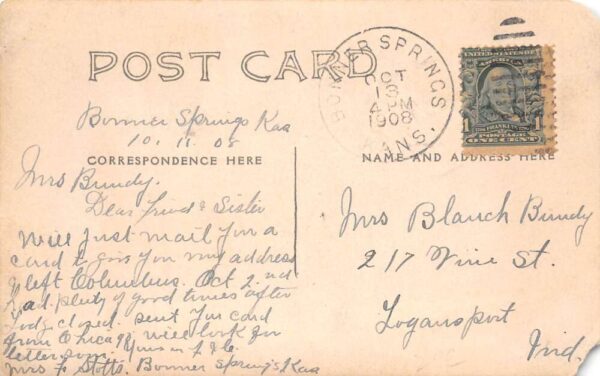 POST CARD
BONNER SPRINGS
KANS.
OCT
4 PM
1908
UNITED STATES OF AMERICA
FRANKLIN
POSTAGE
ONE CENT
Bonner Springs Kas
10. 11. 08
CORRESPONDENCE HERE
Mrs Bundy.
Dear Friend & Sister
Will just mail you a
card to give you my address
I left Columbus. Oct 2.nd
Had plenty of good times after
Lodg closed. sent you card
from Chicago will look for
letter soon. Yours in F & L
Mrs F Stotts. Bonner Springs Kas
NAME AND ADDRESS HERE
Mrs Blanch Bundy
217 Vine St.
Logansport
Ind.